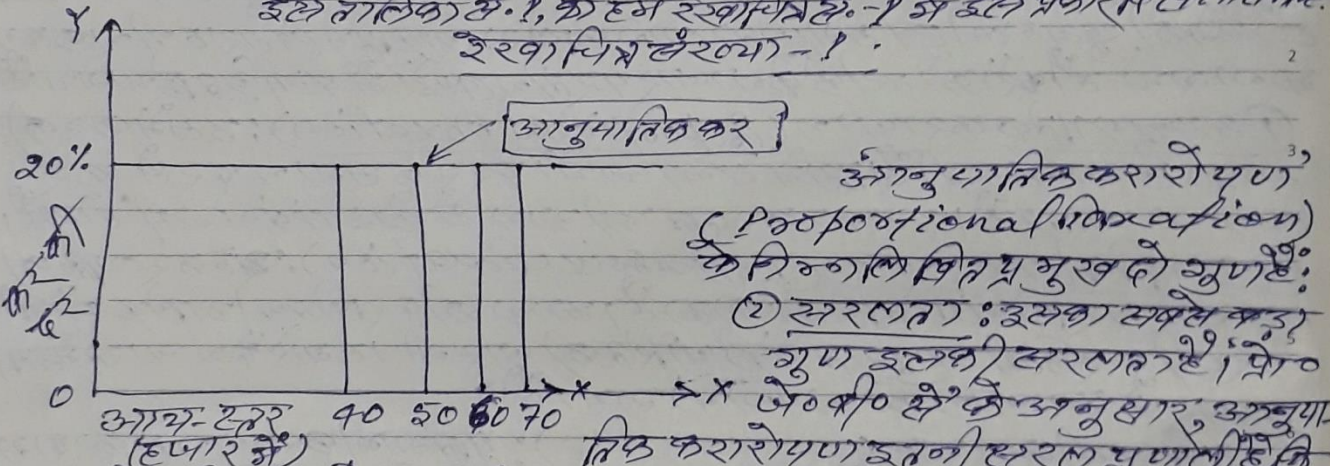 इस तालिका सं.1, को हम रेखाचित्र सं.-1 में इस प्रकार
रेखाचित्र संख्या-1.
Y
आनुपातिक कर
20%
कर की दर
0
आय-स्तर
(हजार में)
40 50 60 70 X X
आनुपातिक करारोपण
(Proportional Taxation)
के निम्नलिखित प्रमुख दो गुण हैं:
① सरलता: इसका सबसे बड़ा
गुण इसकी सरलता है। प्रो०
जे० बी० से के अनुसार, आनुपा-
तिक करारोपण इतनी सरल प्रणाली है कि
2
3